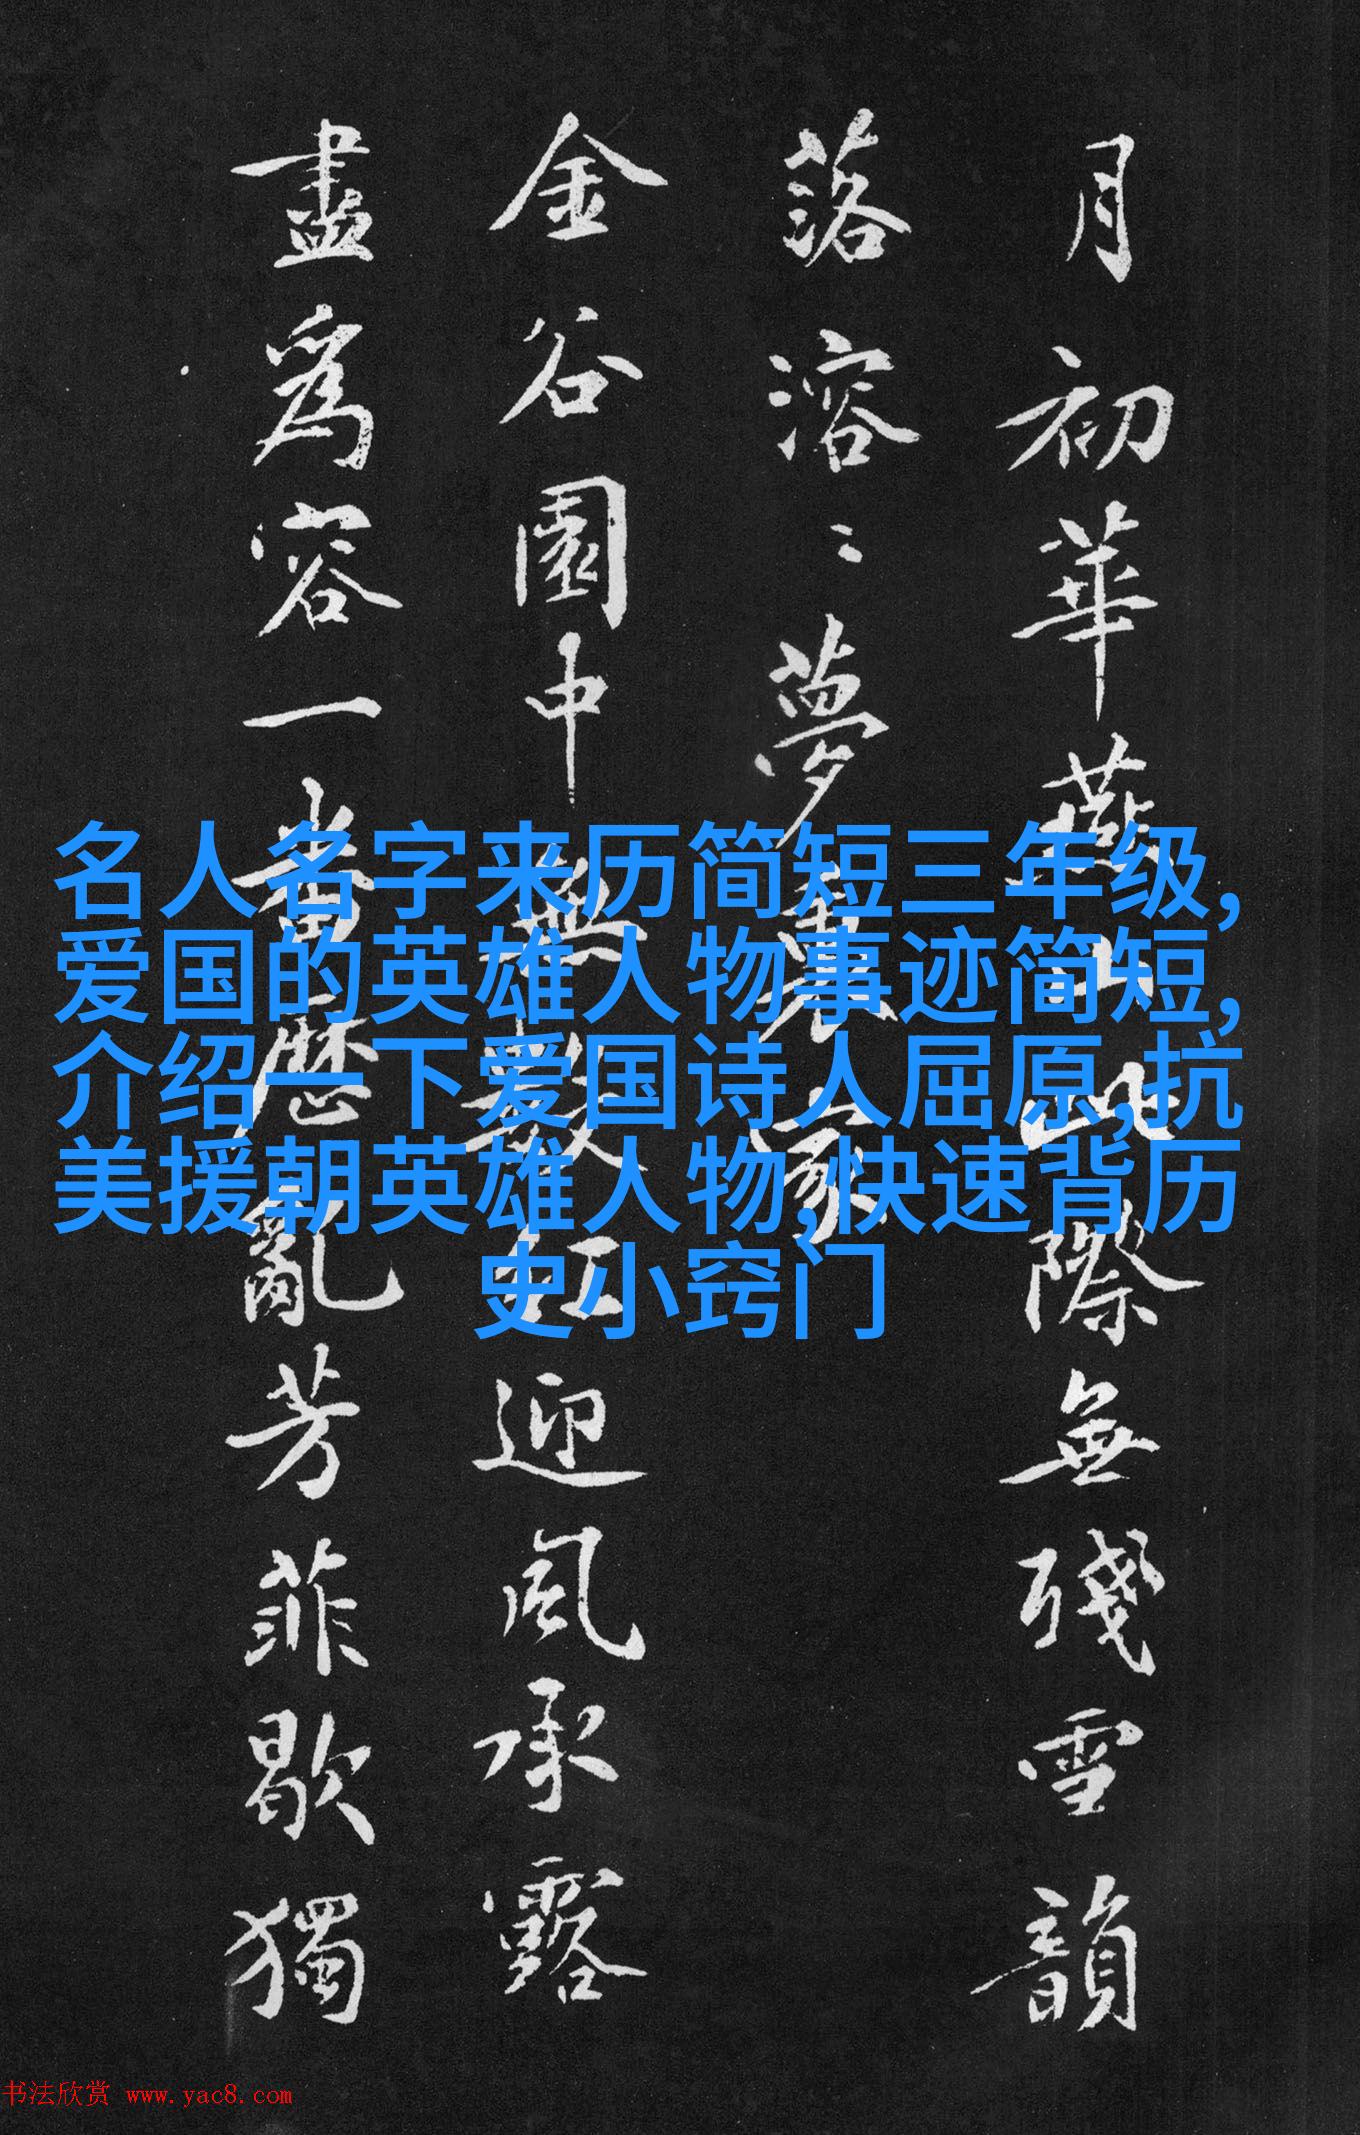 名人名字来历简短三年级,
爱国的英雄人物事迹简短,
介绍一下爱国诗人屈原,抗
美援朝英雄人物,快速背历
史小窍门
月初華燕山此際無殘雪韻
落溶〻夢裏家
金谷園中無數紅迎風承露
盡爲容一番歷亂芳菲歇獨
书法欣赏 www.yac8.com